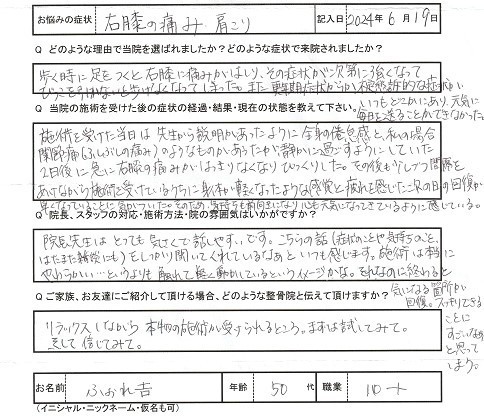 お悩みの症状 右膝の痛み 肩こり 記入日 2024年6月19日
Q どのような理由で当院を選ばれましたか？どのような症状で来院されましたか？
歩く時に足をつくと右膝に痛みがはしり、その症状が次第に強くなって
びっこを引かないと歩けなくなってしまった。また更年期症状からか不定愁訴的な症状が
いつもどこかにあり、元気に
毎日を送ることができなかった。
Q 当院の施術を受けた後の症状の経過・結果・現在の状態を教えて下さい。
施術を受けた当日は先生から説明があったように全身倦怠感と私の場合
関節痛(ふしぶしの痛み)のようなものがあったが、静かに過ごすようにしていた
2日後に急に右膝の痛みがはっきりなくなりびっくりした。その後も少しづつ間隔を
あけながら施術を受けているうちに身体が軽くなったような感覚と疲れを感じた次の日の回復が
早くなっていることに気がついた。そのため、気持ちも前向きになり心も元気になってきているように感じている。
Q 院長、スタッフの対応・施術方法・院の雰囲気はいかがですか？
院長先生はとっても気さくで話しやすいです。こちらの話(症状のことや気持ちのこと、
はたまた雑談にも)をしっかり聞いてくれているなあといつも感じます。施術は本当に
やわらかい…というよりも触れて軽く動かしているというイメージかな。それなのに終わると
気になる箇所が
回復。スッキリできる
ことに
すごいなぁ
と思って
しまう。
Q ご家族、お友達にご紹介して頂ける場合、どのような整骨院と伝えて頂けますか？
リラックスしながら本物の施術が受けられるところ。まずは試してみて。
そして信じてみて。
お名前 ふぉれ吉 年齢 50代 職業 パート
(イニシャル・ニックネーム・仮名も可)